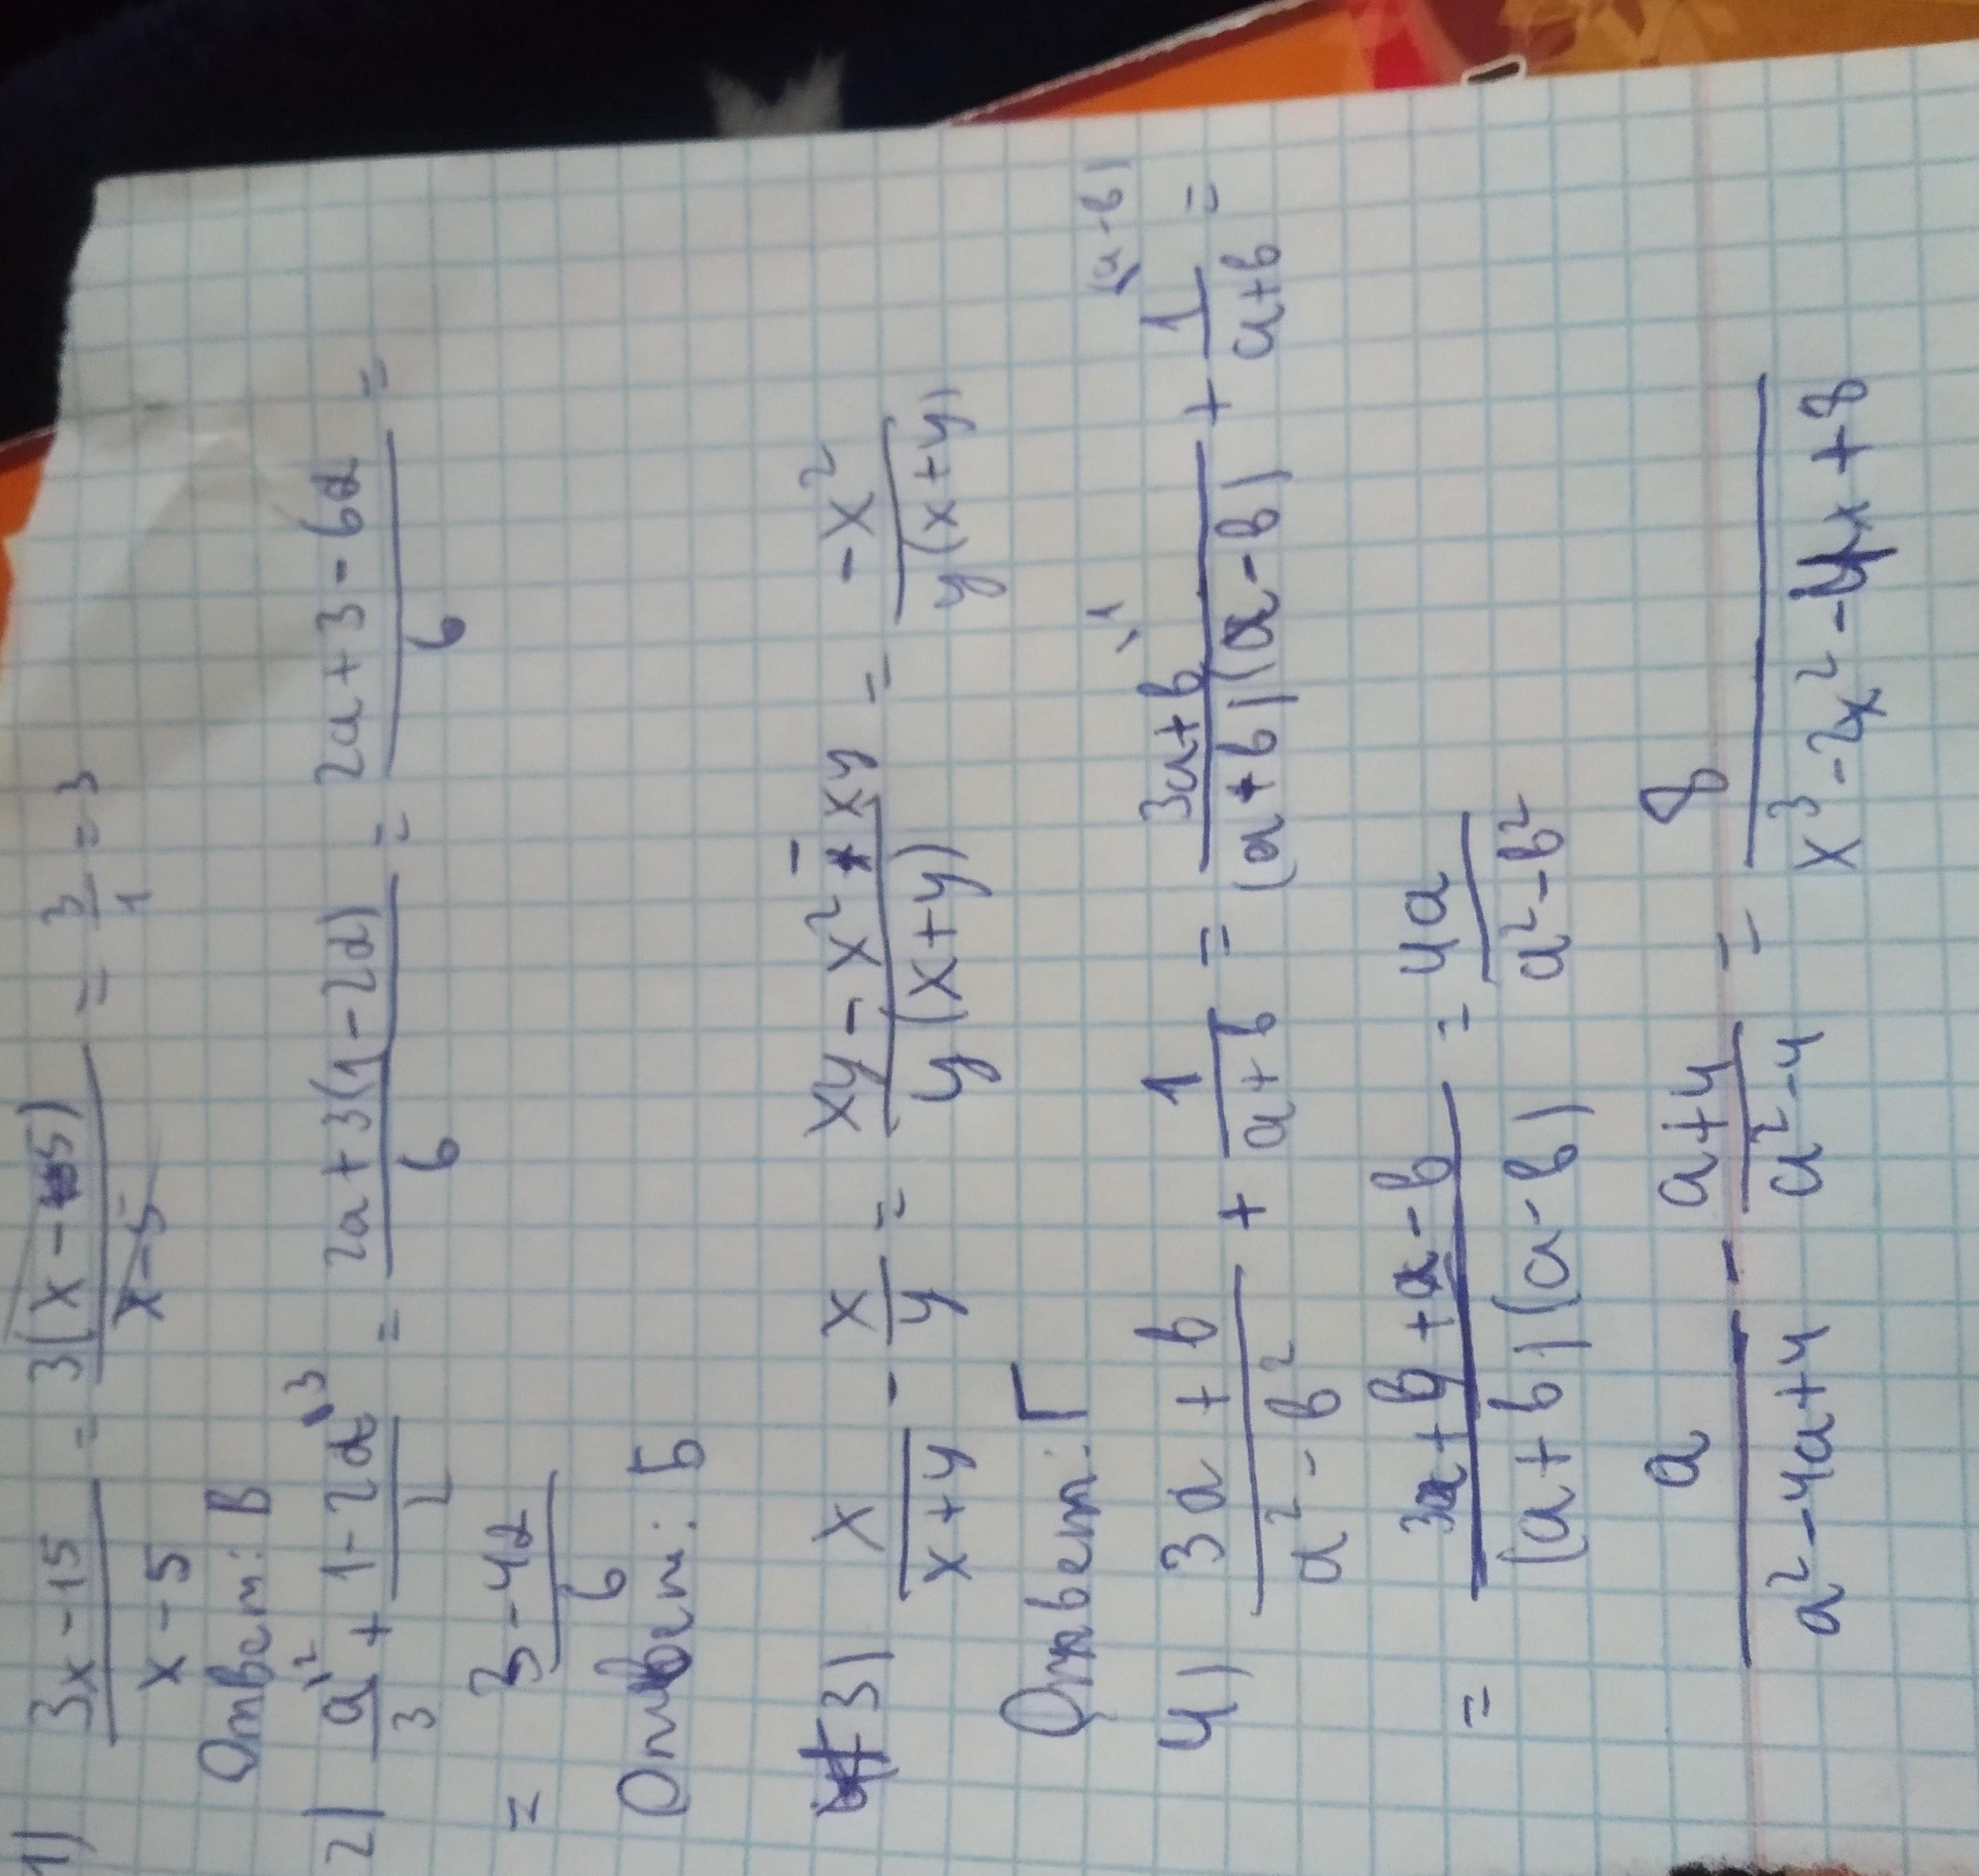 1) (3x-15)/(x-5) = 3(x-5)/(x-5) = 3/1 = 3
Ответ: В
2) a\2/3 + (1-2a\3)/2 = (2a+3(1-2a))/6 = (2a+3-6a)/6 =
= (3-4a)/6
Ответ: Б
3) x/(x+y) - x/y = (xy-x²-xy)/(y(x+y)) = -x²/(y(x+y))
Ответ: Г
4) (3a+b)/(a²-b²) + 1/(a+b) = (3a+b\1)/((a+b)(a-b)) + 1\(a-b)/(a+b) =
= (3a+b+a-b)/((a+b)(a-b)) = 4a/(a²-b²)
a/(a²-4a+4) - (a+4)/(a²-4) = 8/(x³-2x²-4x+8)